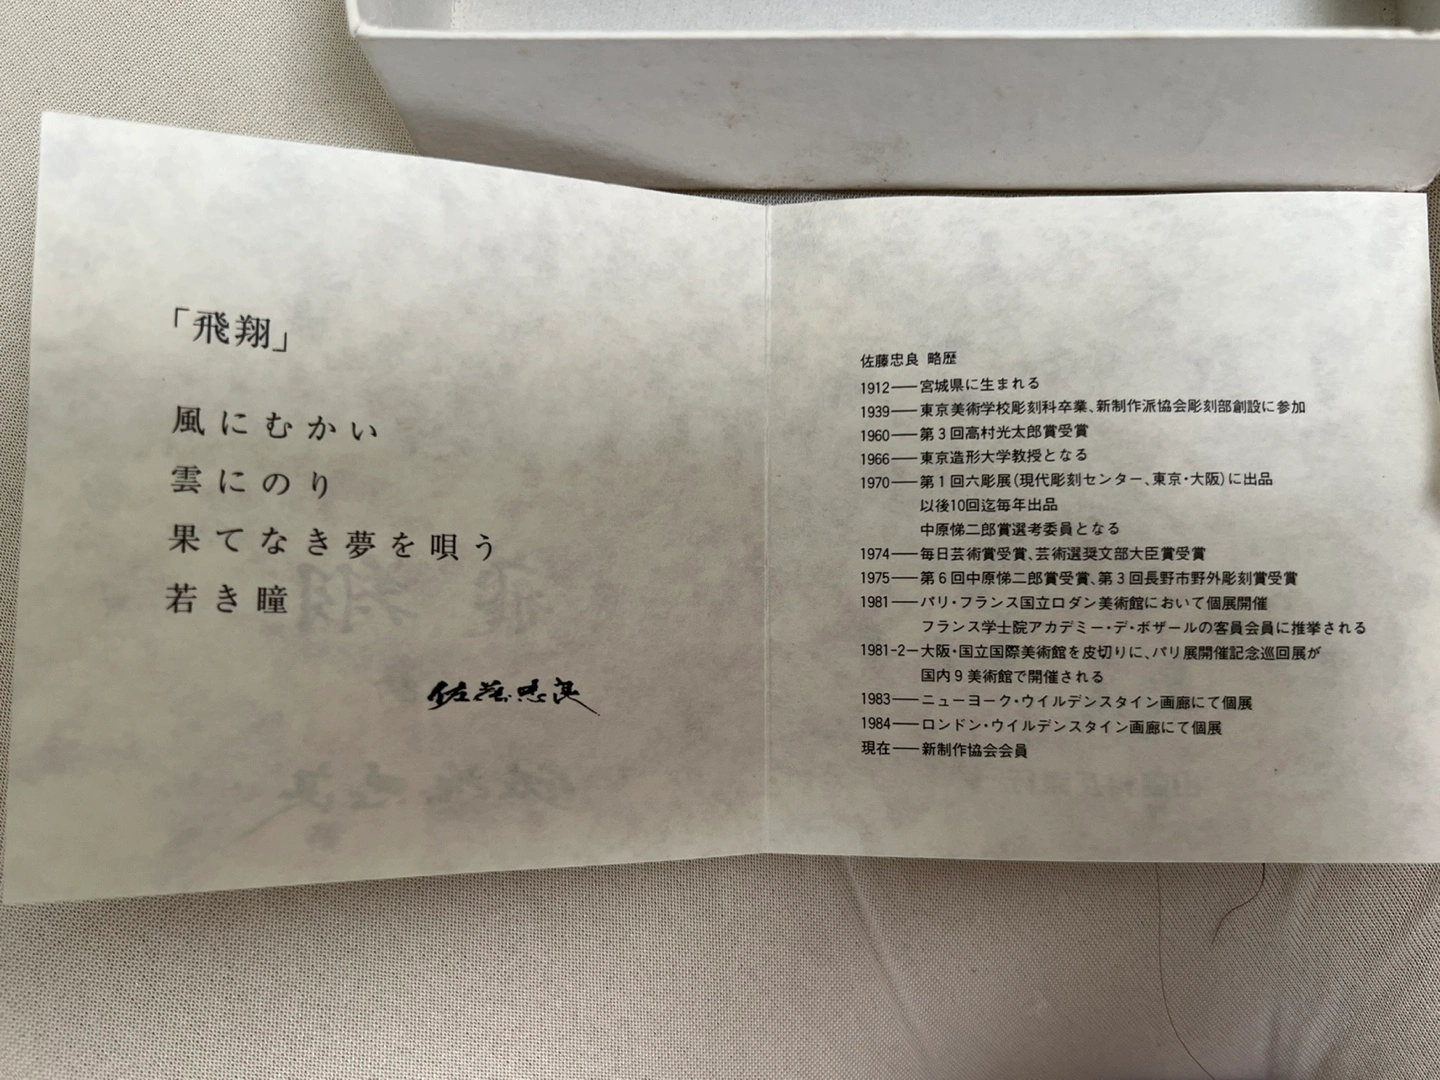 「飛翔」
風にむかい
雲にのり
果てなき夢を唄う
若き瞳
佐藤忠良
佐藤忠良 略歴
1912──宮城県に生まれる
1939──東京美術学校彫刻科卒業、新制作派協会彫刻部創設に参加
1960──第3回高村光太郎賞受賞
1966──東京造形大学教授となる
1970──第1回六彫展(現代彫刻センター、東京・大阪)に出品
以後10回迄毎年出品
中原悌二郎賞選考委員となる
1974──毎日芸術賞受賞、芸術選奨文部大臣賞受賞
1975──第6回中原悌二郎賞受賞、第3回長野市野外彫刻賞受賞
1981──パリ・フランス国立ロダン美術館において個展開催
フランス学士院アカデミー・デ・ボザールの客員会員に推挙される
1981-2─大阪・国立国際美術館を皮切りに、パリ展開催記念巡回展が
国内9美術館で開催される
1983──ニューヨーク・ウイルデンスタイン画廊にて個展
1984──ロンドン・ウイルデンスタイン画廊にて個展
現在──新制作協会会員